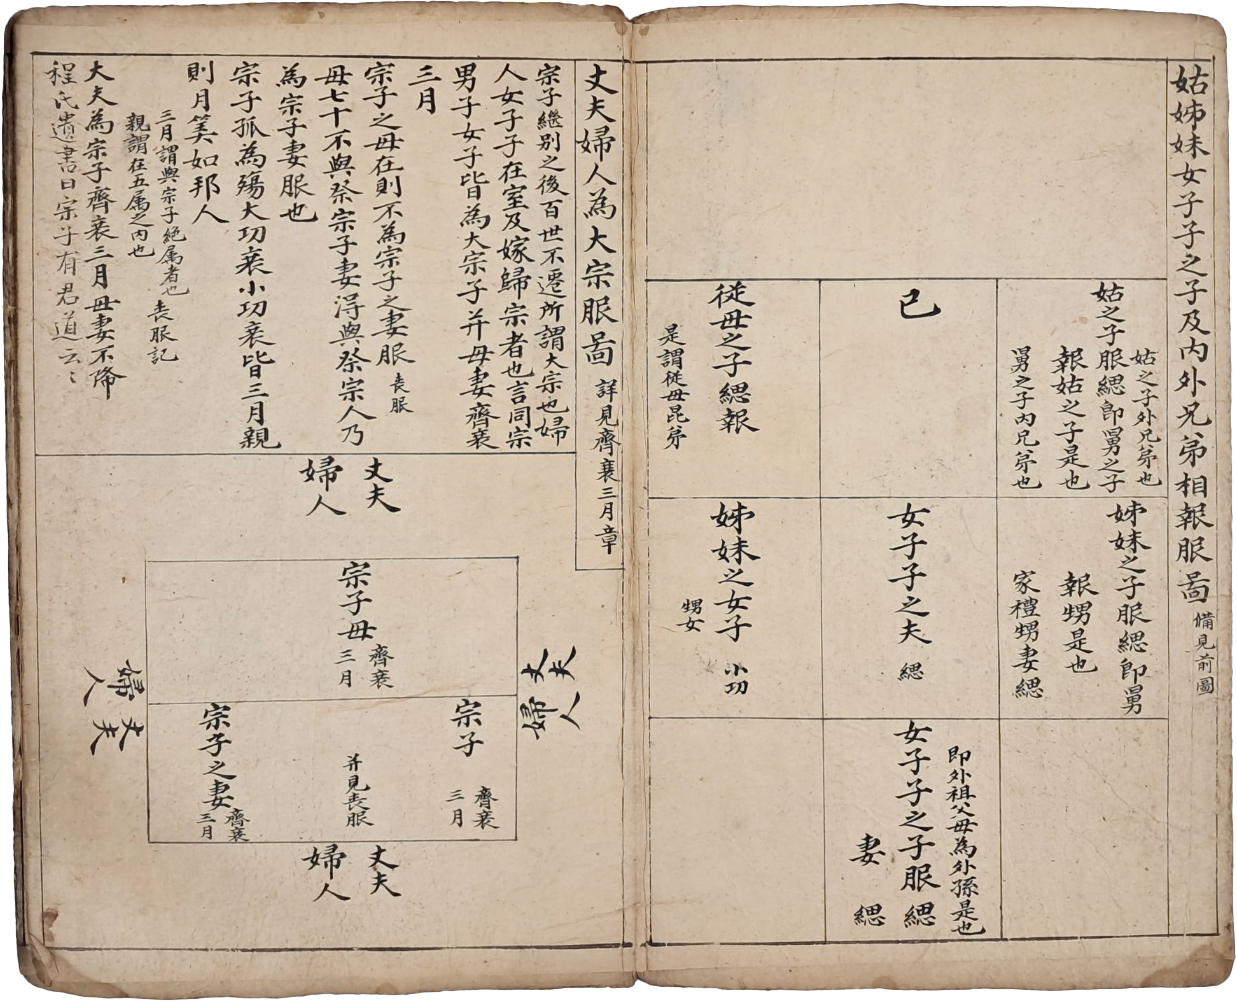 姑姊妹女子子之子及內外兄弟相報服啚
備見前圖
姑之子服緦即舅之子
報姑之子是也
姑之子外兄弟也
舅之子內兄弟也
己
從母之子緦報
是謂從母昆弟
姊妹之子服緦即舅
報甥是也
家禮甥妻緦
女子子之夫 緦
姊妹之女子 小功
甥女
即外祖父母為外孫是也
女子子之子服緦
妻 緦
丈夫婦人為大宗服啚
詳見齊衰三月章
宗子繼別之後百世不遷所謂大宗也婦
人女子子在室及嫁歸宗者也言同宗
男子女子皆為大宗子并母妻齊衰
三月
宗子之母在則不為宗子之妻服 丧服
母七十不與祭宗子妻得與祭宗人乃
為宗子妻服也
宗子孤為殤大功衰小功衰皆三月親
則月筭如邦人
三月謂與宗子絶属者也 丧服記
親謂在五属之內也
大夫為宗子齊衰三月母妻不降
程氏遺書曰宗子有君道云〻
丈夫
婦人
丈夫
婦人
宗子母 齊衰
三月
宗子 齊衰
三月
并見丧服
宗子之妻 齊衰
三月
丈夫
婦人
丈夫
婦人